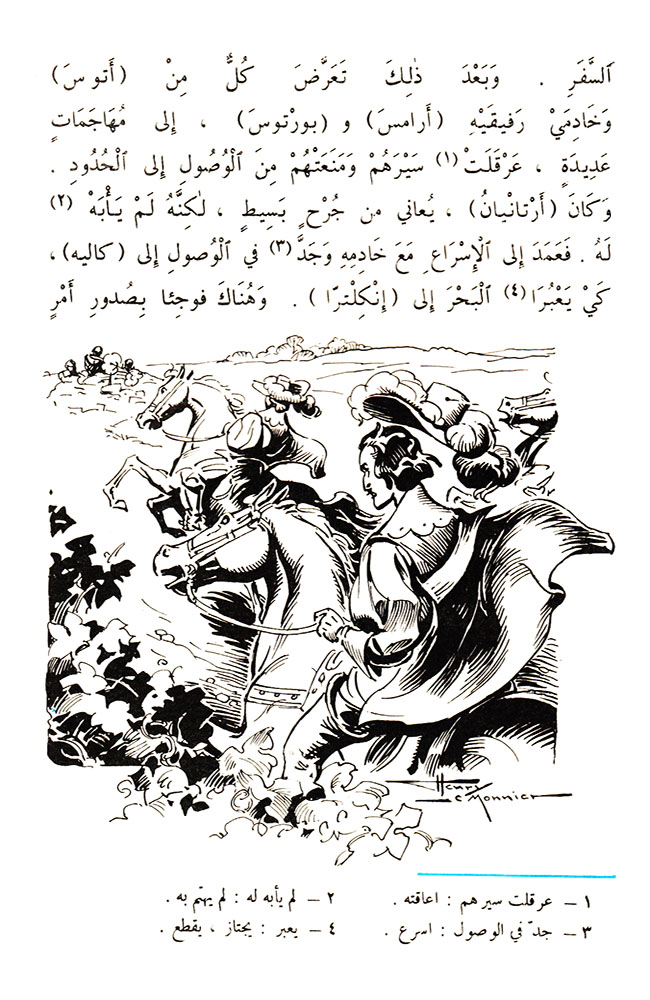 ٱلسَّفَرِ . وَبَعْدَ ذٰلِكَ تَعَرَّضَ كُلٌّ مِنْ (أَتوسَ)
وَخَادِمَيْ رَفيقَيْهِ (أَرامسَ) و (بورْتوسَ) ، إِلى مُهَاجَمَاتٍ
عَدِيدَةٍ ، عَرْقَلَتْ (١) سَيْرَهُمْ وَمَنَعَتْهُمْ مِنَ ٱلْوُصُولِ إِلى ٱلْحُدُودِ .
وَكَانَ (أَرْتانْيانُ) ، يُعاني من جُرْحٍ بَسِيطٍ ، لٰكِنَّهُ لَمْ يَأْبَهْ (٢)
لَهُ . فَعَمَدَ إِلى ٱلْإِسْرَاعِ مَعَ خادِمِهِ وَجَدَّ (٣) في ٱلْوُصولِ إِلى (كاليه) ،
كَيْ يَعْبُرَا (٤) ٱلْبَحْرَ إِلى (إِنْكِلْترّا) . وَهُنَاكَ فوجِئا بِصُدورِ أَمْرٍ
Henri
Le Monnier
١ – عرقلت سيرهم : اعاقته . ٢ – لم يأبه له : لم يهتّم به .
٣ – جدّ في الوصول : اسرع . ٤ – يعبر : يجتاز ، يقطع .